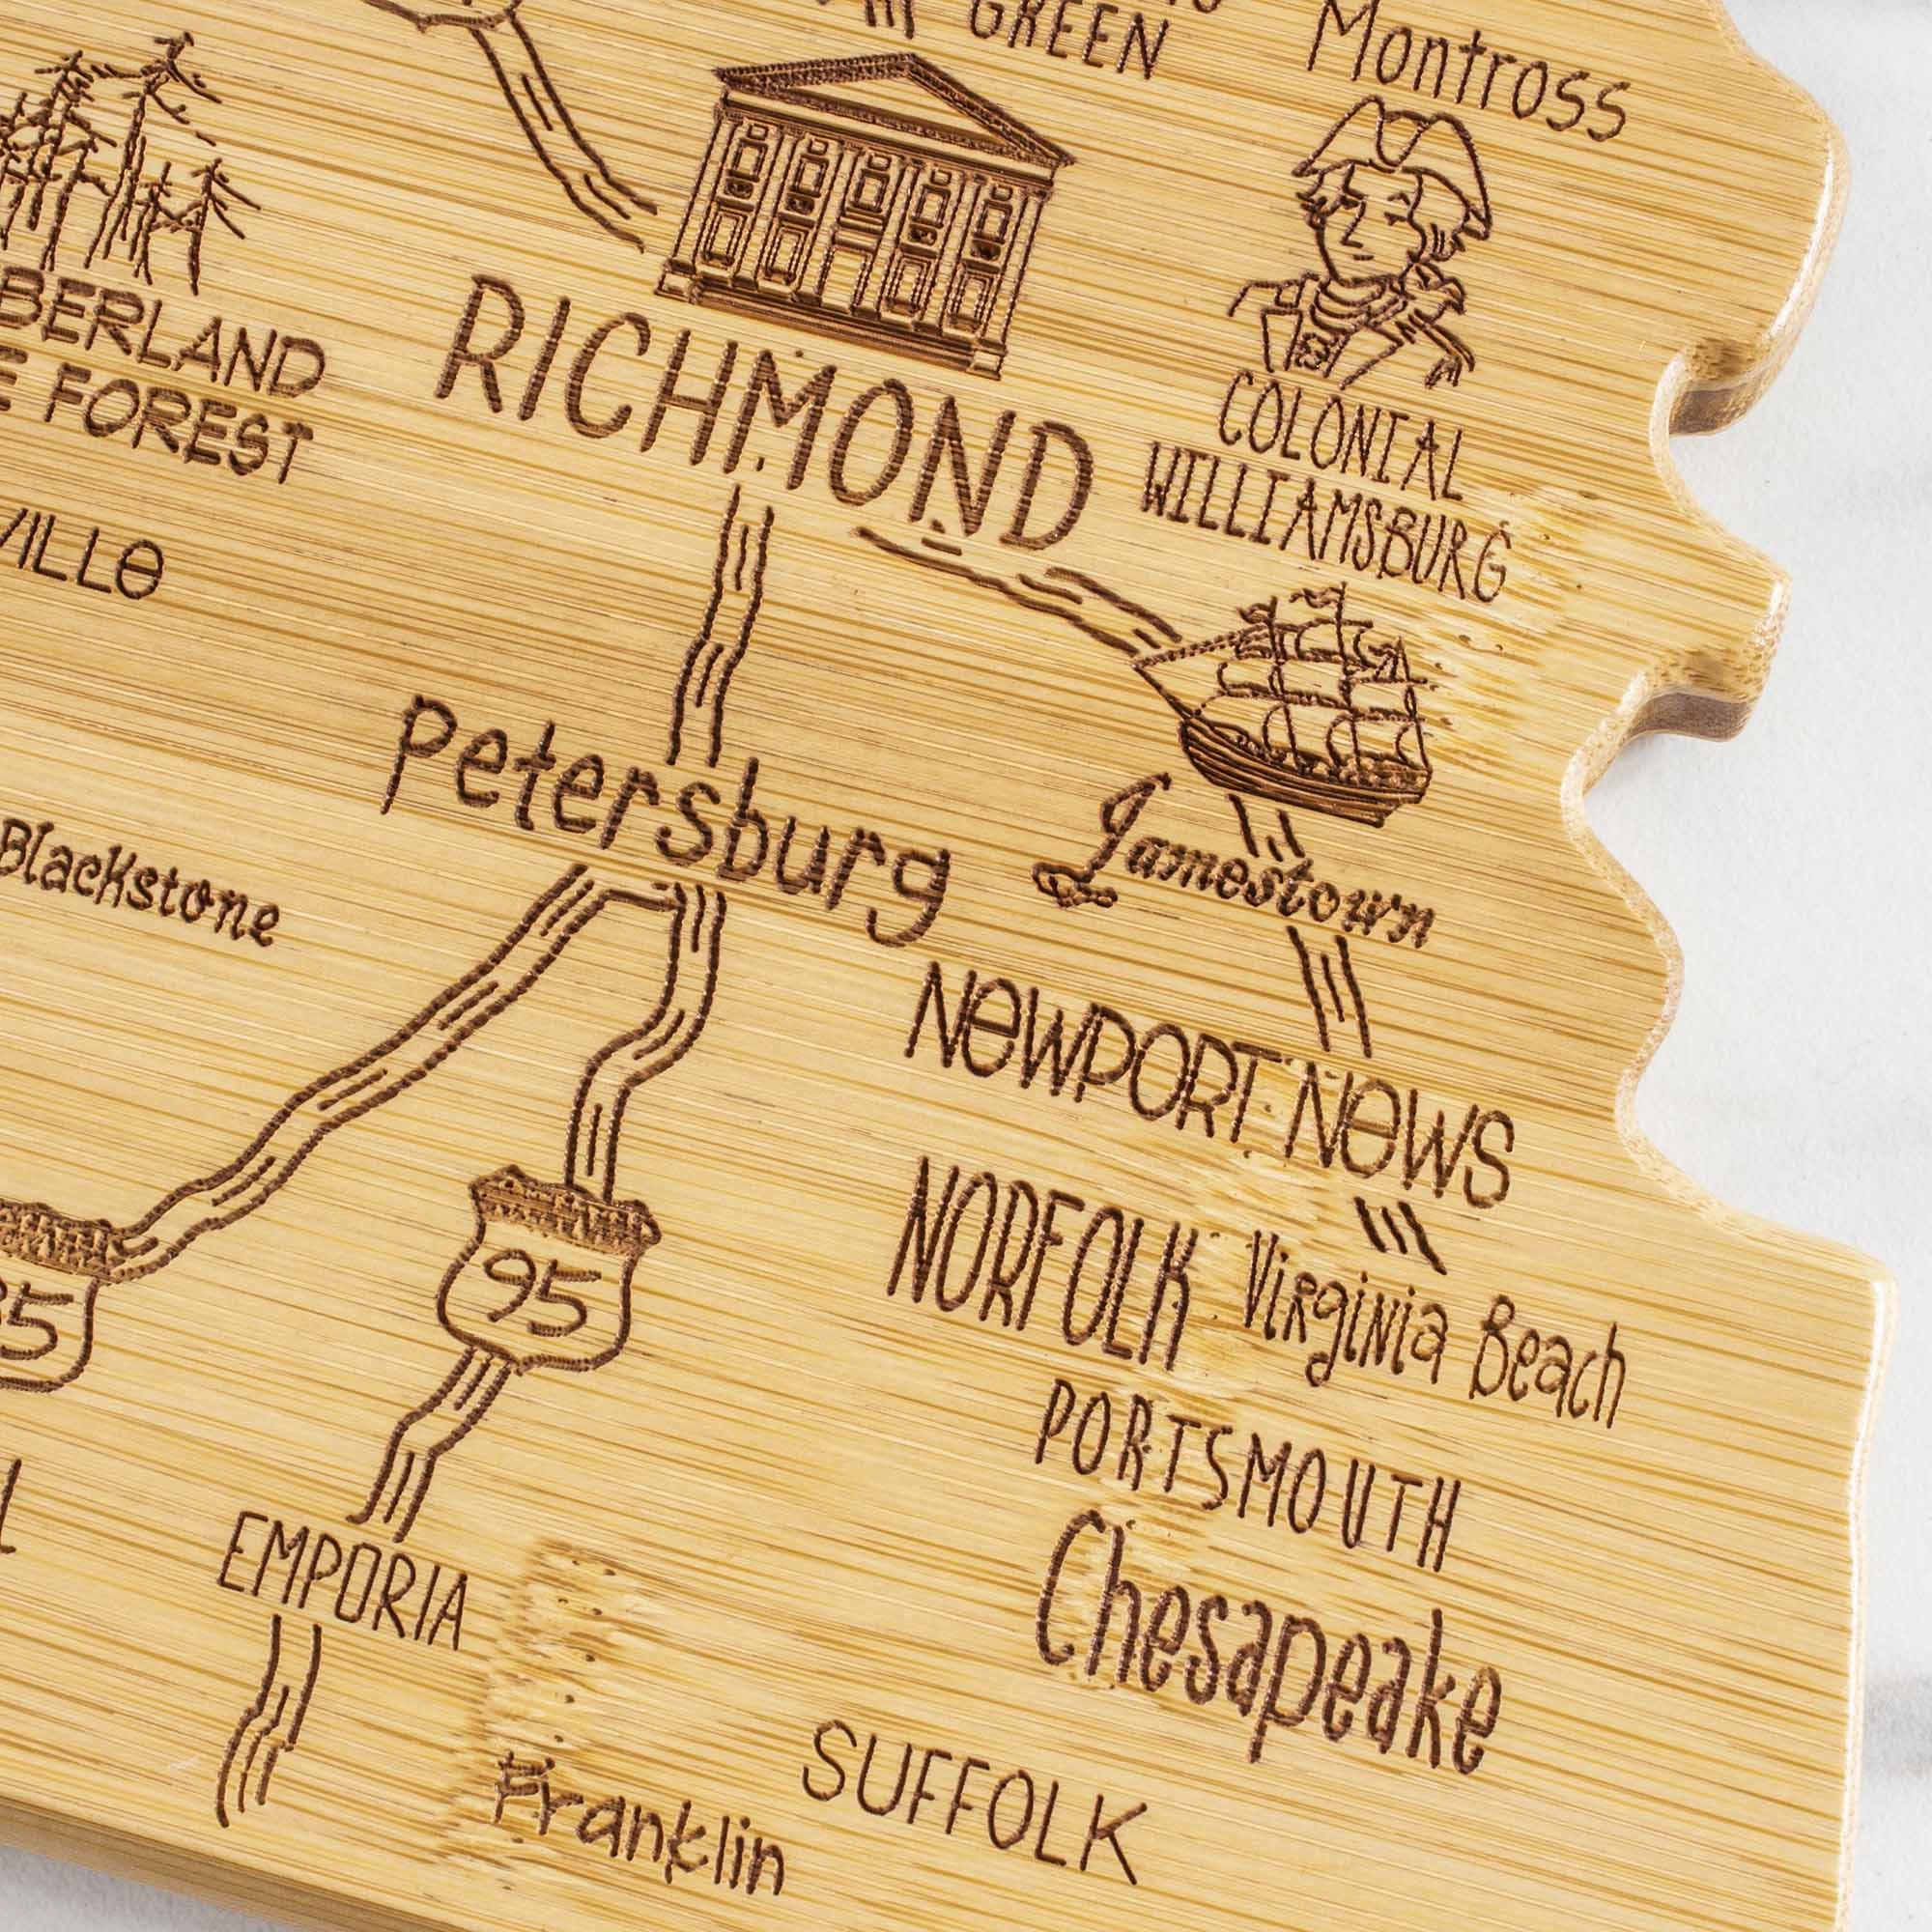 GREEN
Montross
RICHMOND
COLONIAL
WILLIAMSBURG
BERLAND
FOREST
VILLe
Petersburg
Jamestown
Blackstone
NeWPORT NeWS
NORFOLK
Virginia Beach
95
PORTSMOUTH
Chesapeake
EMPORIA
SUFFOLK
Franklin